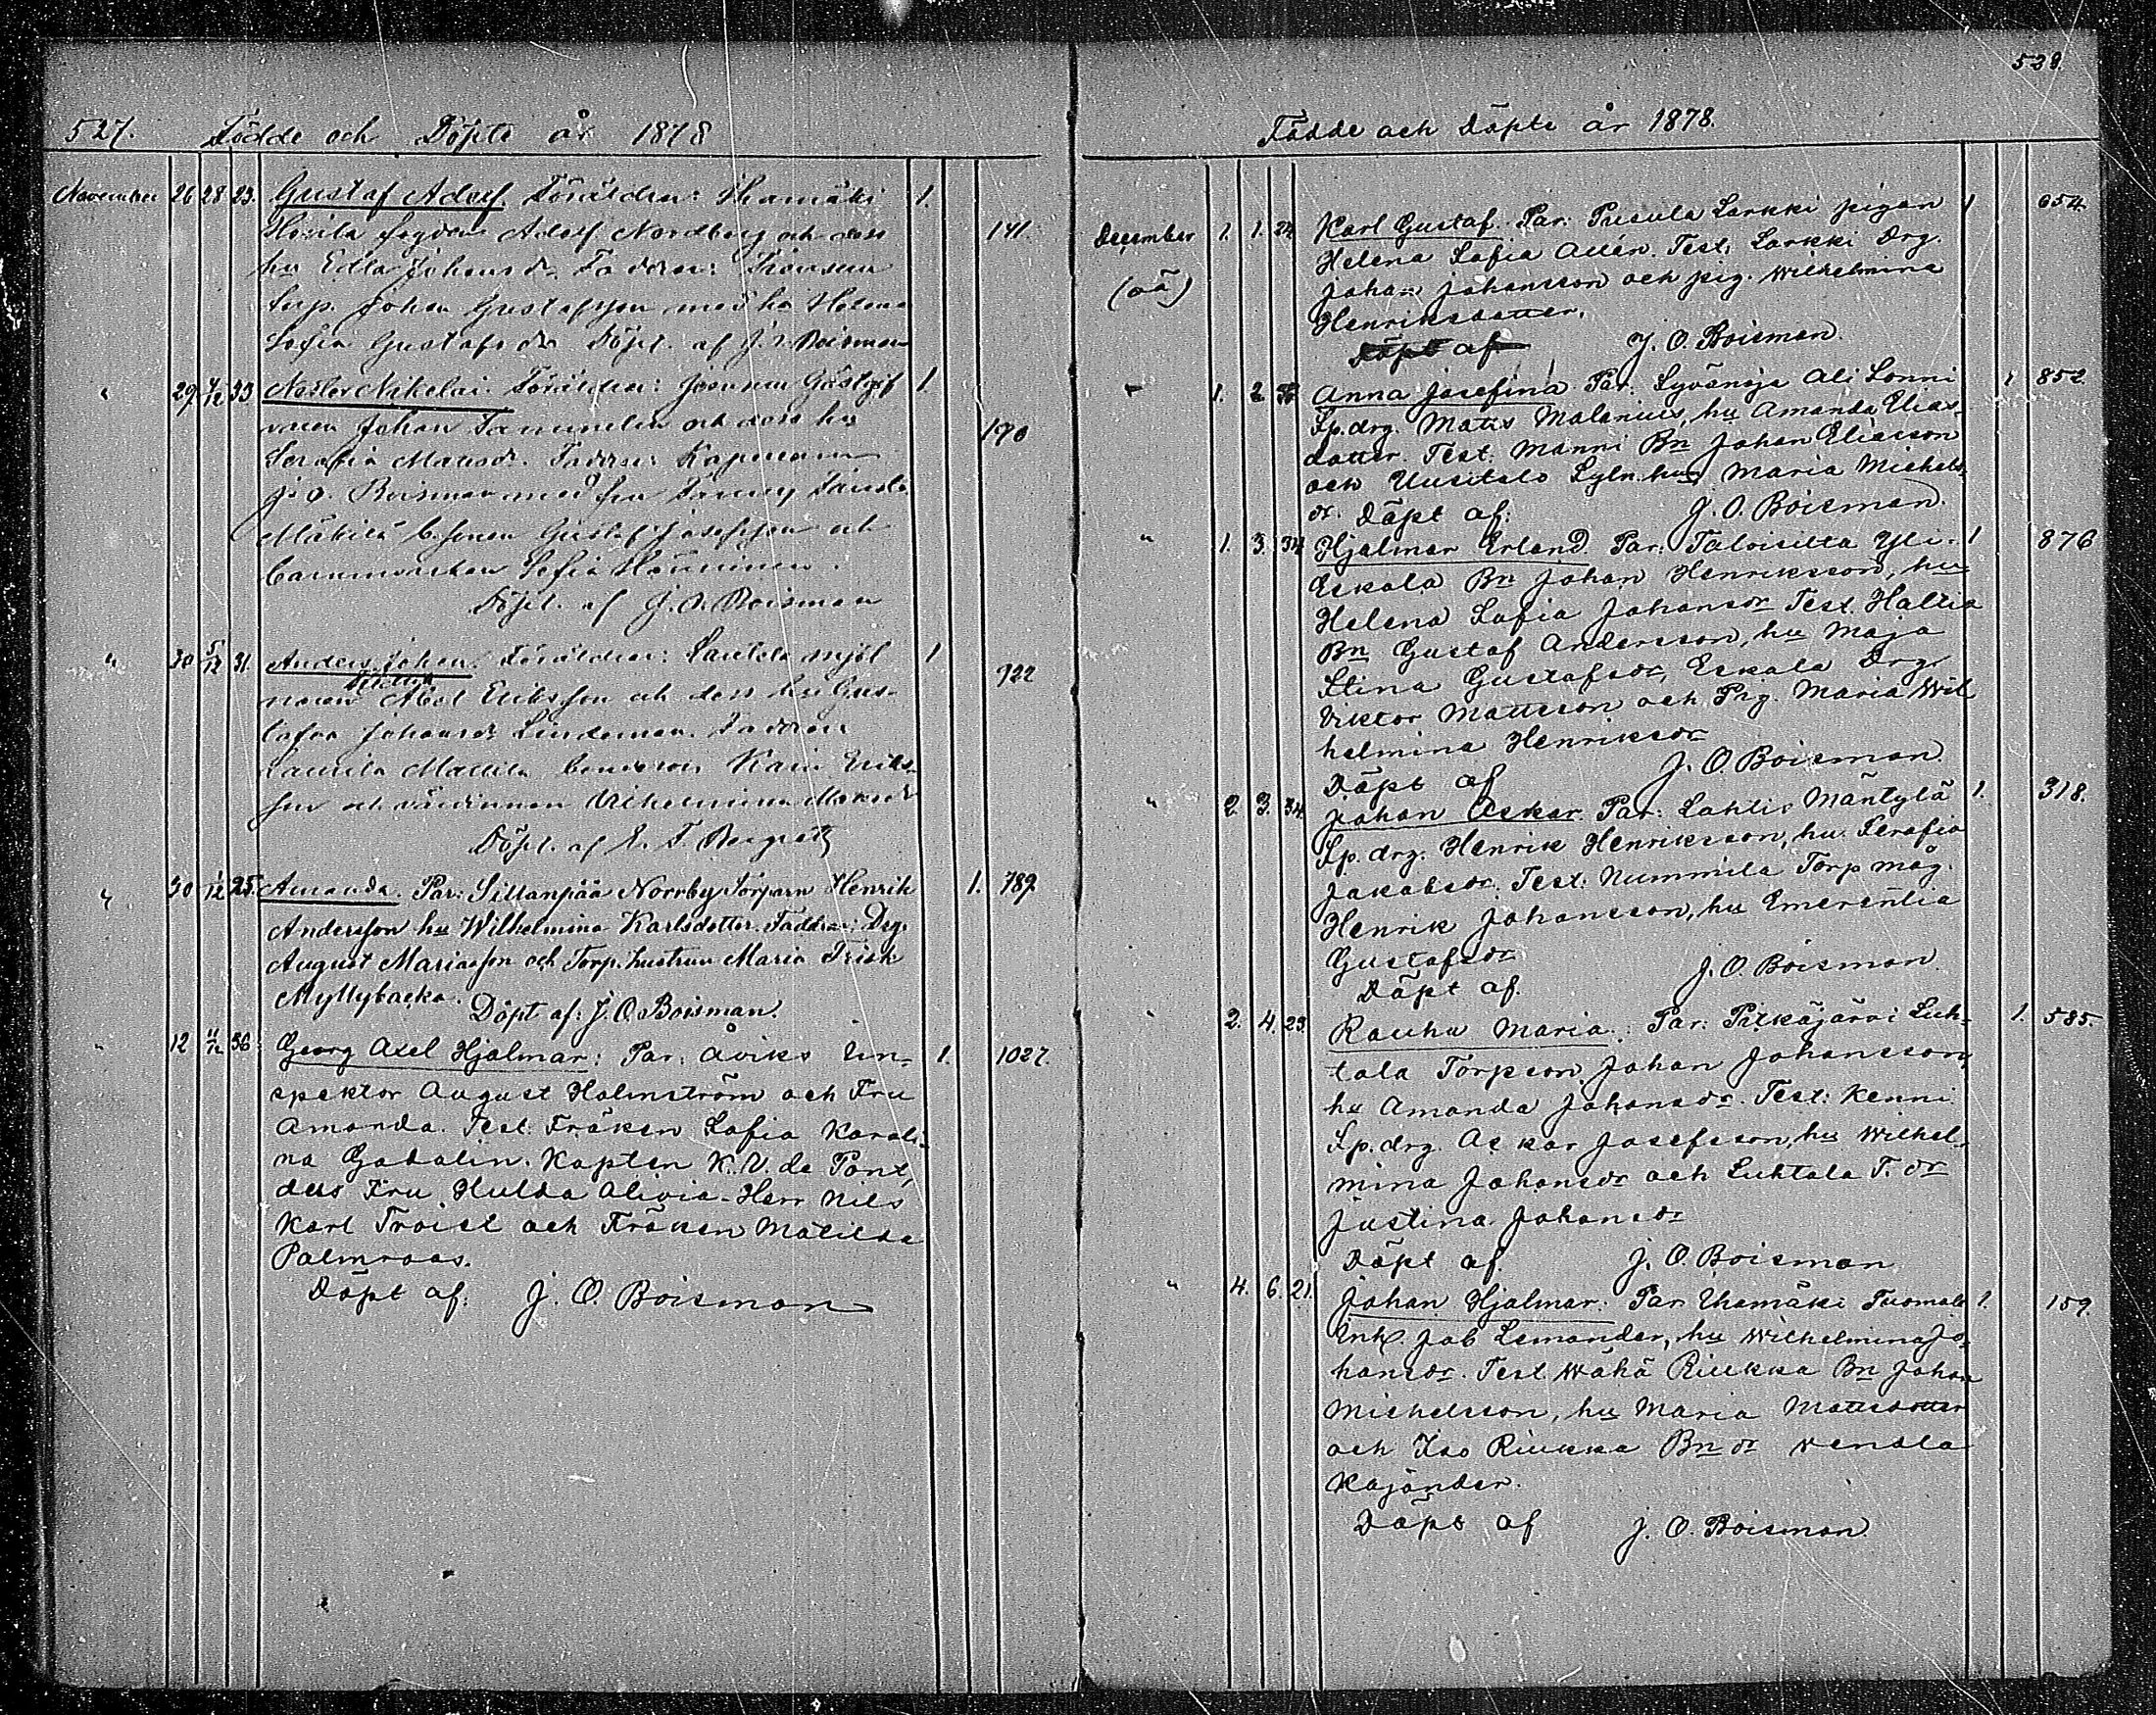 527. Födde och Döpte år 1878
November 26 28 23. Gustaf Adolf. Föräldrar: 1.
Adolf Nordberg och dess 141.
hu Edla Johansdr. Faddrar:
Johan Gustafsson med hu Helena
Sofia Gustafsdr Döpt. af J. O. Boisman
" 29 33 Nestor Nikolai. Föräldrar: Gästgif 1.
varen Johan och dess hu 190
Serafia Mattsdr. Faddrar: Kapell
J. O. Boisman med fru
Gustaf Josefsson och
barnmorskan Sofia Hänninen.
Döpt. af J. O. Boisman
" 30 5/12 31. Anders Johan. Föräldrar: mjöl 1
naren Abel Eriksson och dess hu Gus- 922
tafva Johansdr Lindeman. Faddrar
Erics-
son och värdinnan Vilhelmina
Döpt. af
" 30 1/12 25. Amanda. Par: Sillanpää Norrby Torparn Henrik 1. 789.
Andersson hu Wilhelmina Karlsdotter. Faddrar: Drg.
August Mariasson och Torp. hustrun Maria Frisk
Myllybacka. Döpt af: J. O. Boisman.
" 12 11/12 36 Georg Axel Hjalmar: Par: Åviks In- 1. 1027.
spektor August Holmström och Fru
Amanda. Test: Fröken Sofia Karoli-
na Gadolin. Kapten K. V. de Pont,
dess Fru Hulda Olivia. Herr Nils
Karl Troil och Fröken Matilda
Palmroos.
Döpt af: J. O. Boisman
528.
Födde och Döpte år 1878.
December 1. 1. 24 Karl Gustaf. Par: Pusula Larkki pigan 1 654.
(öä) Helena Sofia Allén. Test: Larkki Drg.
Johan Johansson och pig. Wilhelmina
Henriksdotter.
Döpt af J. O. Boisman.
" 1. 2. Anna Josefina Par: Hyvänoja Ali Sonni 1 852.
Sp. drg. Matts Malenius, hu Amanda Elias-
dotter. Test: Manni Bn Johan Eliasson
och Uusitalo Syln. hu Maria Michels
dr. Döpt af: J. O. Boisman.
" 1. 3. 34 Hjalmar Erland. Par: Taloisilta Yli- 1 876
Eskola Bn Johan Henriksson, hu
Helena Sofia Johansdr Test. Haltia
Bn Gustaf Andersson, hu Maja
Stina Gustafsdr, Eskola Drg.
Viktor Mattsson och Pig. Maria Wil
helmina Henriksdr
Döpt af J. O. Boisman.
" 2. 3. 34. Johan Oskar. Par: Lahtis Mäntylä 1. 318.
Sp. drg. Henrik Henriksson, hu Serafia
Jakobsdr. Test: Nummila Torp måg.
Henrik Johansson, hu Emerentia
Gustafsdr
Döpt af. J. O. Boisman.
" 2. 4. 23. Rauha Maria. Par: Pitkäjärvi Luh- 1. 585.
tala Torpson Johan Johansson,
hu Amanda Johansdr. Test: Kenni
Sp. drg. Oskar Josefsson, hu Wilhel-
mina Johansdr och Luhtala T. dr
Justina Johansdr
Döpt af. J. O. Boisman
" 4. 6. 21. Johan Hjalmar. Par: Ikamäki Tuomola 1. 159.
Jab Lemander, hu Wilhelmina Jo-
hansdr. Test. Wähä Riukka Bn Johan
Michelsson, hu Maria Mattsdotter
och Iso Riukka Bn dr Wendla
Kajander.
Döpt af J. O. Boisman